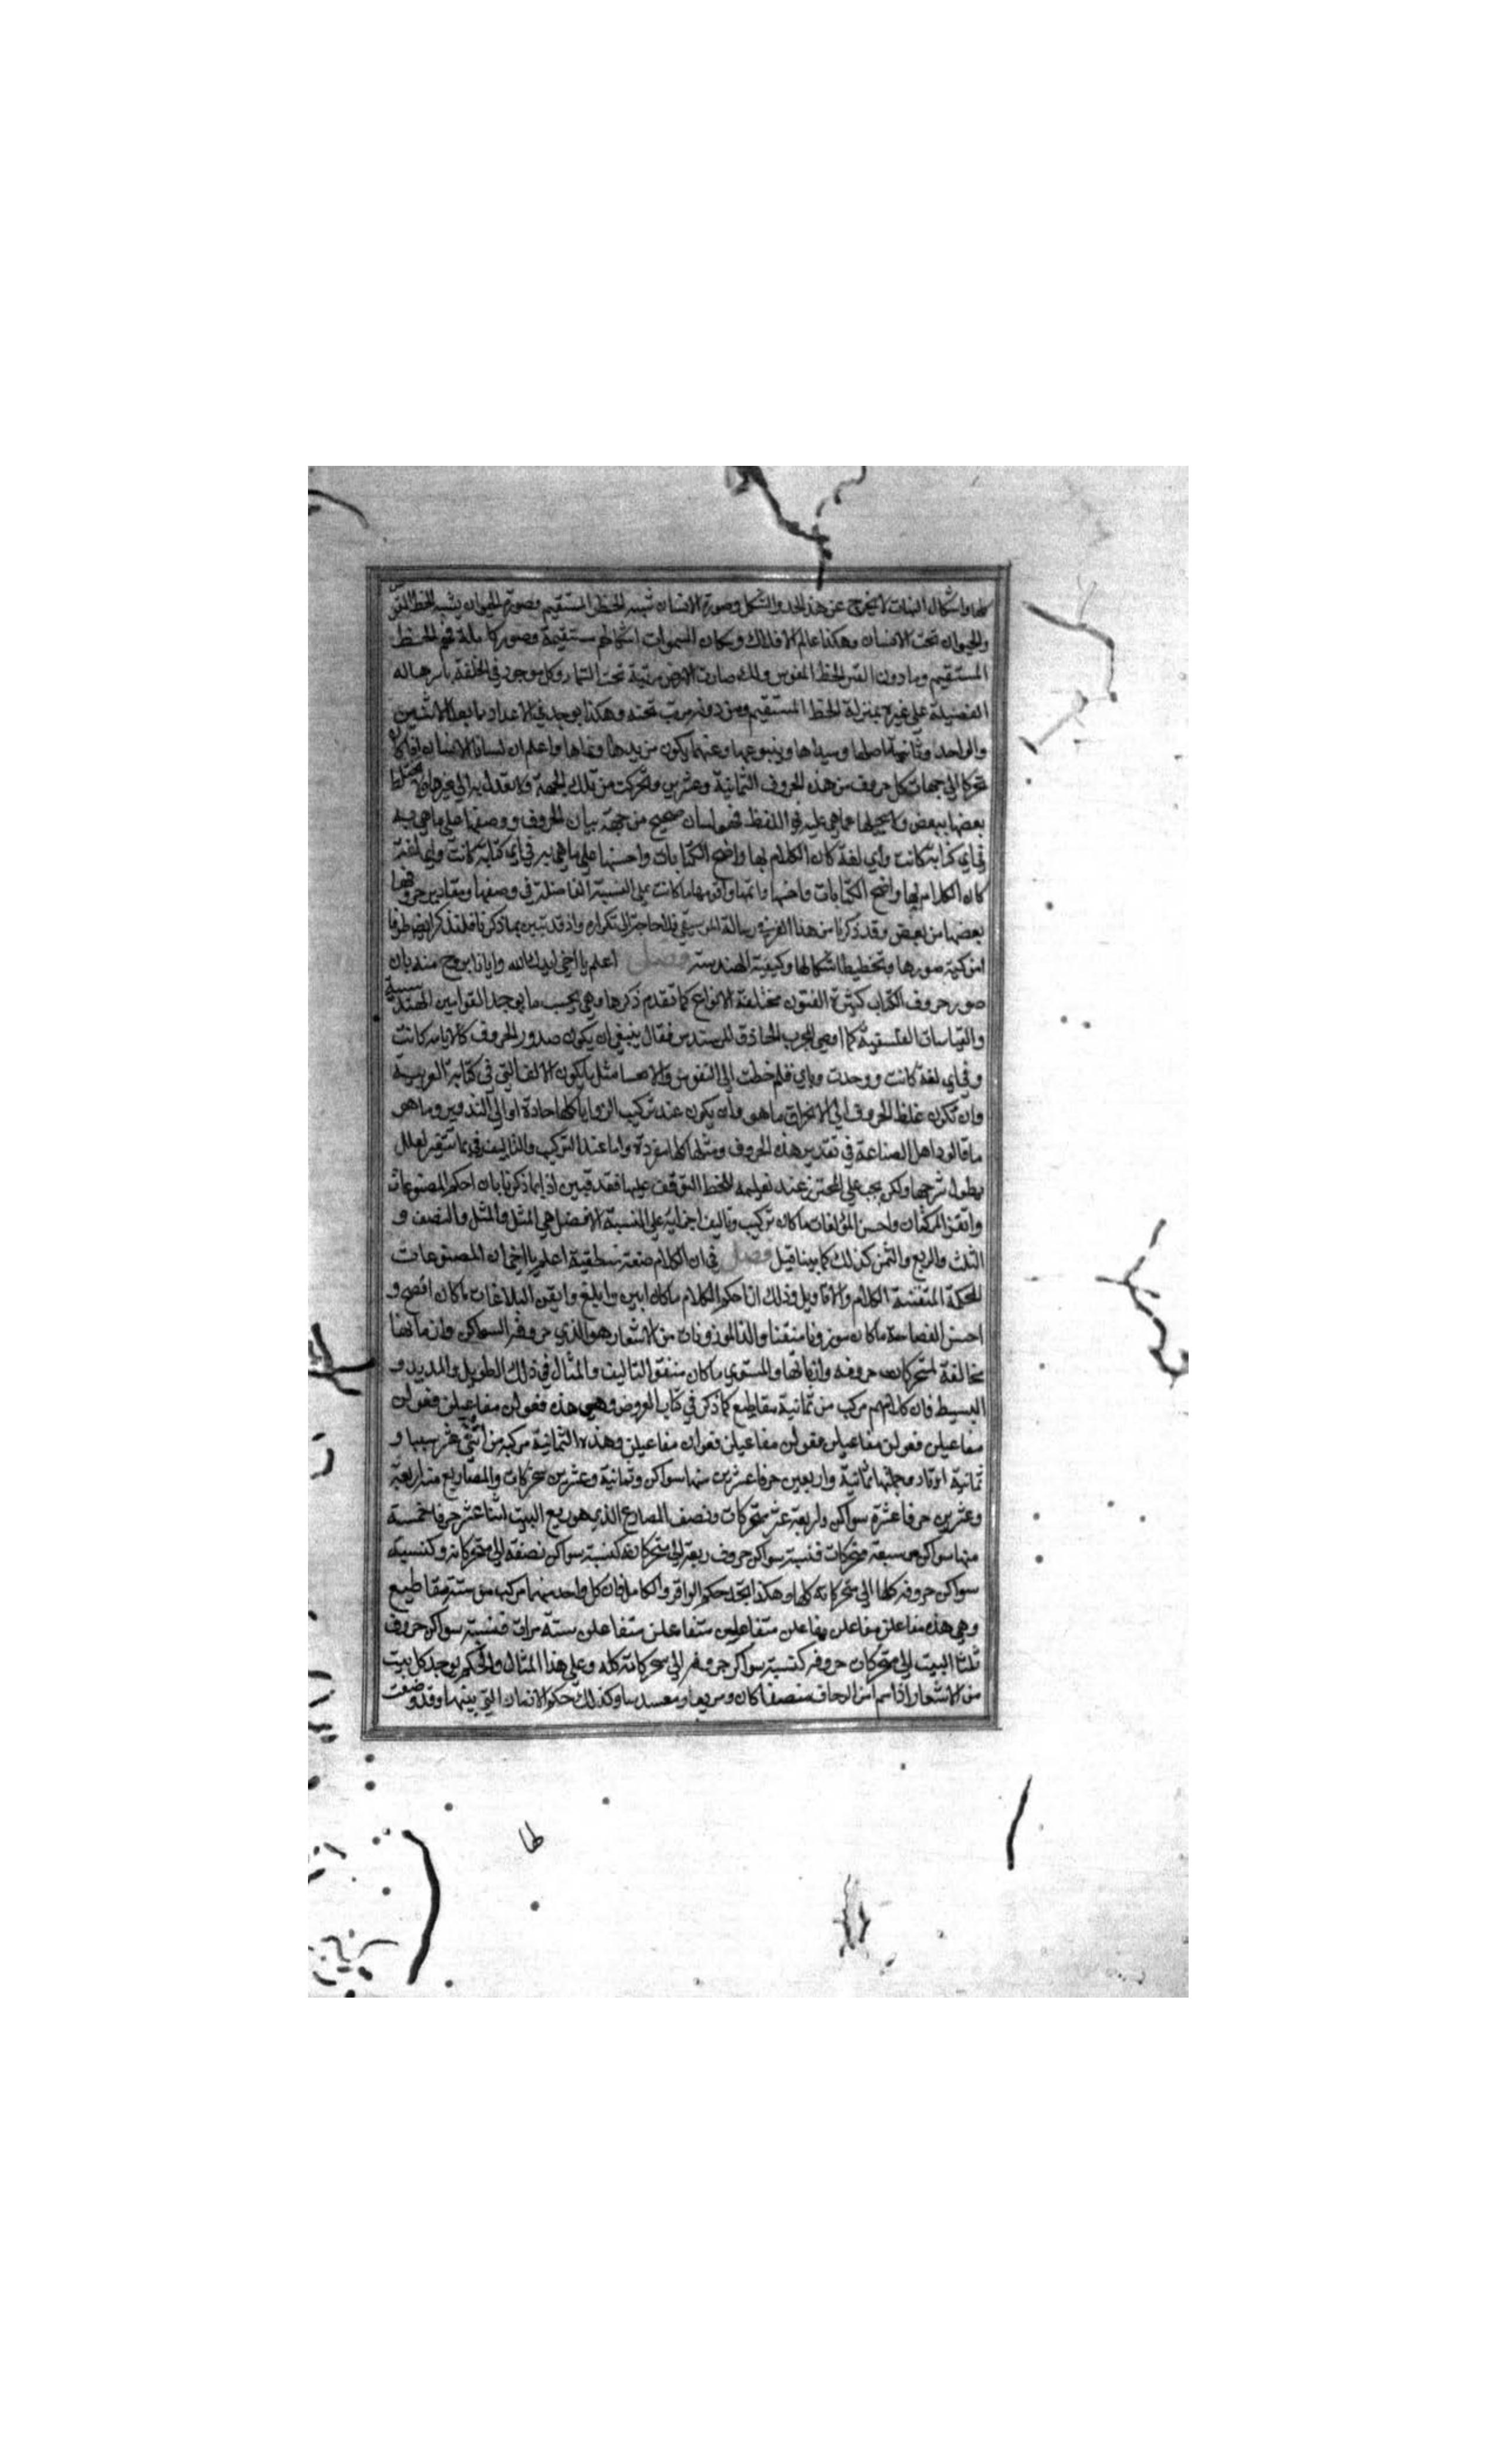 كلها واشكال النبات لا يخرج عن هذا الحد والشكل وصورة الانسان تشبه الخط المستقيم وصورة الحيوان يشبه الخط المقوس
والحيوان تحت الانسان وهكذا عالم الافلاك وسكان السموات اشكالهم مستقيمة وصور كاملة فهم الخط
المستقيم وما دون القمر الخط المقوس ولك صارت الارض مرتبة تحت السماء وكل موجود في الخلقة باسرها له
الفضيلة على غيره بمنزلة الخط المستقيم ومن دونه مرتب تحته وهكذا يوجد في الاعداد ما بعد الاثنين
والواحد اصلها ومبداها وينبوعها وعنهما يكون مزيدها ونماها واعلم ان لسان الانسان اذا كان
متحركا الى جهات كل حروف من هذه الحروف الثمانية وعشرين وتحركت من تلك الجهة ولا تعدل به الى غيرها ولا يختلط
بعضها ببعض عما هي عليه في اللفظ فهو لسان صحيح من جهة بيان الحروف ووصفها على ما هي به
في اي كتابة كانت واي لغة كان الكلام بها واصح الكتابات واحسنها على ما هي به في اي كتابة كانت واي لغة
كان الكلام بها واصح الكتابات واحسنها واتمها واقومها ما كانت على النسبة الفاضلة في وصفها ومقادير حروفها
بعضها من بعض وقد ذكرنا من هذا الفن في رسالة الموسيقى فلا حاجة الى تكراره واذ قد تبين بما ذكرنا فلنذكر ايضا طرفا
من كمية صورها وتخطيط اشكالها وكيفية الهندسة فصل اعلم يا اخي ايدك الله وايانا بروح منه بان
صور حروف الكتاب كثيرة الفنون مختلفة الانواع كما تقدم ذكرها وهي بحسب ما يوجد القوانين الهندسية
والقياسات الفلسفية كما اوصى المحرر الحاذق المهندس فقال ينبغي ان يكون صدور الحروف كلها باية كانت
وفي اي لغة كانت ووجدت وباي قلم خطت الى التقوس والانحنا مثل ما يكون الالف التي في كتابة العربية
وان تكون غلظ الحروف الى الانخراق ما هو وان يكون عند تركيب الزوايا كلها حادة او الى التدوير وما هو
ما قالوه اهل الصناعة في تقدير هذه الحروف ومثلها كلها مفردة واما عند التركيب والتاليف لعلل
يطول شرحها ولكن يجب على المحترز عند تعليمه للخط التوقف عليها فقد تبين اذا بما ذكرنا بان احكم المصنوعات
واتقن المركبات واحسن المؤلفات ما كان تركيب وتاليف اجزائه على النسبة الافضل هي المثل والمثل والنصف و
الثلث والربع والثمن كذلك كما بينا قيل فصل في ان الكلام صنعة منطقية اعلم يا اخي ان المصنوعات
المحكمة المتقنة الكلام والاقاويل وذلك ان احكم الكلام ما كان ابين وابلغ واتقن البلاغات ما كان افصح و
احسن الفصاحة ما كان موزونا متقنا والذ الموزونات من الاشعار هو الذي حروفه السواكن وازمانها
مخالفة لمتحركات حروفه وازمانها والمستوي ما كان متفق التاليف والمثال في ذلك الطويل والمديد و
البسيط فان كل منهم مركب من ثمانية مقاطيع كما ذكر في كتاب العروض وهي هذه فعولن مفاعيلن فعولن
مفاعيلن فعولن مفاعيلن فعولن مفاعيلن فعولن مفاعيلن وهذه الثمانية مركبة من اثني عشر سببا و
ثمانية اوتاد وجملتها ثمانية واربعين حرفا عشرين منها سواكن وثمانية وعشرين متحركات والمصاريع منه اربعة
وعشرين حرفا عشرة سواكن واربعة عشر متحركات ونصف المصراع الذي هو ربع البيت اثنا عشر حرفا خمسة
منها سواكن سبعة متحركات فنسبة سواكن حروف ربعه الى متحركاته كنسبة سواكن نصفه الى متحركاته وكنسبة
سواكن حروفه كلها الى متحركاته كلها وهكذا تجد حكم الوافر والكامل فان كل واحد منهما مركب من ستة مقاطيع
وهي هذه مفاعلن مفاعلن مفاعلن متفاعلين متفاعلن متفاعلن ستة مرات فنسبة سواكن حروف
ثلثا البيت الى متحركات حروفه كنسبة سواكن حروفه الى متحركاته كله وعلى هذا المثال والحكم يوجد كل بيت
من الاشعار اذا سلم من الزحاف منصفا كان ومربعا ومسدسا وكذلك حكم الازمان التي بينهما وقد وضعت
طا